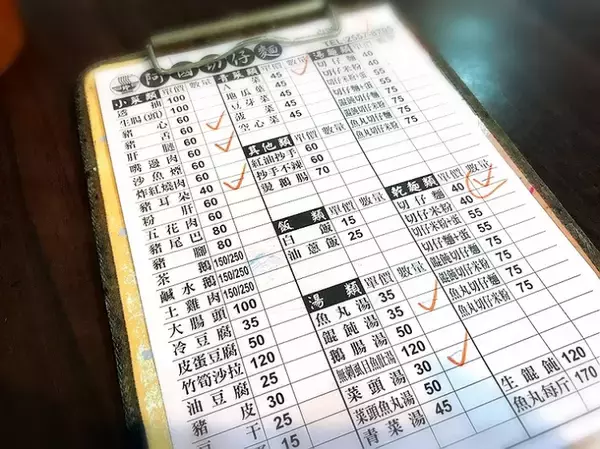 阿國切仔麵
小菜類 單價 數量
透抽 100
生腸(頭) 100
豬心 60
豬舌 60
肝腱 60
嘴邊肉 60
沙魚煙 60
炸紅燒肉 60
豬耳朵 40
粉肝 60
五花肉 60
豬尾巴 60
豬腳 80
茶鵝 150/250
鹹水鵝 150/250
土雞肉 150/250
大腸頭 100
冷豆腐 35
皮蛋豆腐 50
竹筍沙拉 120
油豆腐 25
豬皮 30
豆干 25
15
青菜類 單價 數量
A菜 45
地瓜菜 45
豆芽菜 45
菠菜 45
空心菜 45
其他類 單價 數量
紅油抄手 60
抄手不辣 60
燙鵝腸 70
飯類 單價 數量
白飯 15
油蔥飯 25
湯類 單價 數量
魚丸湯 35
餛飩湯 35
鵝腸湯 50
無刺虱目魚肚湯 120
菜頭湯 30
菜頭魚丸湯 50
青菜湯 45
湯麵類 單價 數量
切仔麵 40
切仔米粉 40
切仔麵+蛋 55
切仔米粉+蛋 55
餛飩切仔麵 75
餛飩切仔米粉 75
魚丸切仔麵 75
魚丸切仔米粉 75
乾麵類 單價 數量
切仔麵 40
切仔米粉 40
切仔麵+蛋 55
切仔米粉+蛋 55
餛飩切仔麵 75
餛飩切仔米粉 75
魚丸切仔麵 75
魚丸切仔米粉 75
生餛飩 120
魚丸每斤 170